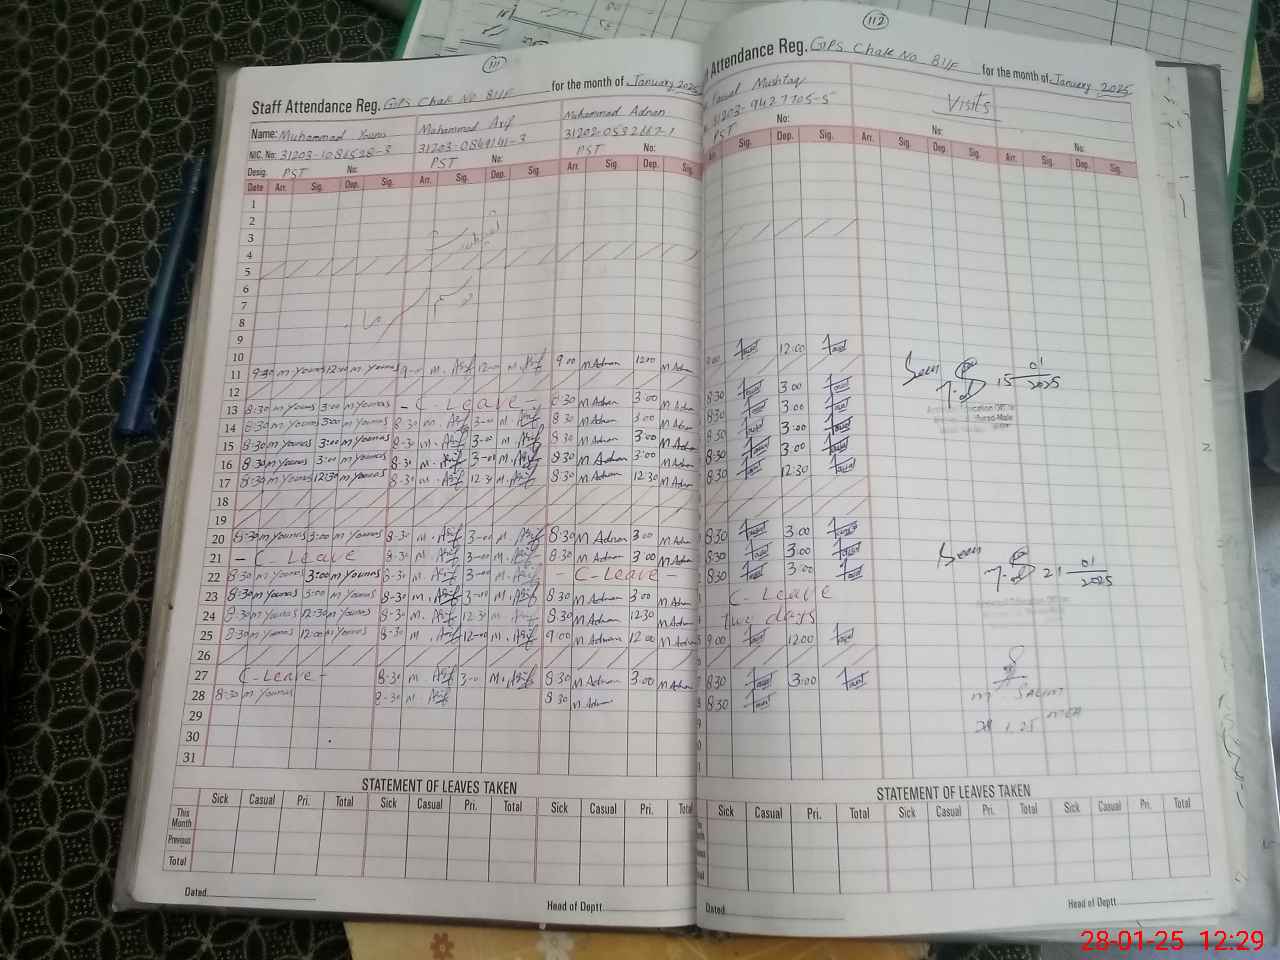 111
Staff Attendance Reg. GPS Chak No 81/F for the month of January 2025
Name: Muhammad Younas Muhammad Asif Muhammad Adnan
NIC. No: 31203-1086528-3 31203-0869141-3 31202-0532667-1
Desig. PST No: PST No: PST No:
Date Arr. Sig. Dep. Sig. Arr. Sig. Dep. Sig. Arr. Sig. Dep. Sig.
1
2
3
4
5
6
7
8
9
10
11 9:30 M Younas 12:00 M Younas 9-00 M. Asif 12-00 M. Asif 9:00 M Adnan 12:00 M Adnan
12
13 8:30 M Younas 3:00 M Younas - C-Leave - 8:30 M Adnan 3:00 M Adnan
14 8:30 M Younas 3:00 M Younas 8-30 M. Asif 3-00 M. Asif 8:30 M Adnan 3:00 M Adnan
15 8:30 M Younas 3:00 M Younas 8-30 M. Asif 3-00 M. Asif 8:30 M Adnan 3:00 M Adnan
16 8:30 M Younas 3:00 M Younas 8-30 M. Asif 3-00 M. Asif 8:30 M Adnan 3:00 M Adnan
17 8:30 M Younas 12:30 M Younas 8-30 M. Asif 12-30 M. Asif 8:30 M Adnan 12:30 M Adnan
18
19
20 8:30 M Younas 3:00 M Younas 8-30 M. Asif 3-00 M. Asif 8:30 M Adnan 3:00 M Adnan
21 - C-Leave 8-30 M. Asif 3-00 M. Asif 8:30 M Adnan 3:00 M Adnan
22 8:30 M Younas 3:00 M Younas 8-30 M. Asif 3-00 M. Asif - C-Leave -
23 8:30 M Younas 3:00 M Younas 8-30 M. Asif 3-00 M. Asif 8:30 M Adnan 3:00 M Adnan
24 8:30 M Younas 12:30 M Younas 8-30 M. Asif 12-30 M. Asif 8:30 M Adnan 12:30 M Adnan
25 8:30 M Younas 12:00 M Younas 8-30 M. Asif 12-00 M. Asif 9:00 M Adnan 12:00 M Adnan
26
27 C-Leave - 8-30 M. Asif 3-00 M. Asif 8:30 M Adnan 3:00 M Adnan
28 8:30 M Younas 8-30 M. Asif 8:30 M Adnan
29
30
31
STATEMENT OF LEAVES TAKEN
Sick Casual Pri. Total Sick Casual Pri. Total Sick Casual Pri. Total
This Month
Previous
Total
Dated Head of Deptt
112
Attendance Reg. GPS Chak No 81/F for the month of January 2025
Mushtaq Visits
31203-9427705-5
PST No: No: No:
Sig. Dep. Sig. Arr. Sig. Dep. Sig. Arr. Sig. Dep. Sig.
9:00 12:00
8:30 3:00
8:30 3:00
8:30 3:00
8:30 3:00
8:30 12:30
8:30 3:00
8:30 3:00
8:30 3:00
C-Leave
two days
9:00 12:00
8:30 3:00
8:30
Seen
15 01/2025
Seen
21 01/2025
M Saleem
MEA
28 1.25
STATEMENT OF LEAVES TAKEN
Sick Casual Pri. Total Sick Casual Pri. Total Sick Casual Pri. Total
Dated Head of Deptt
28-01-25 12:29